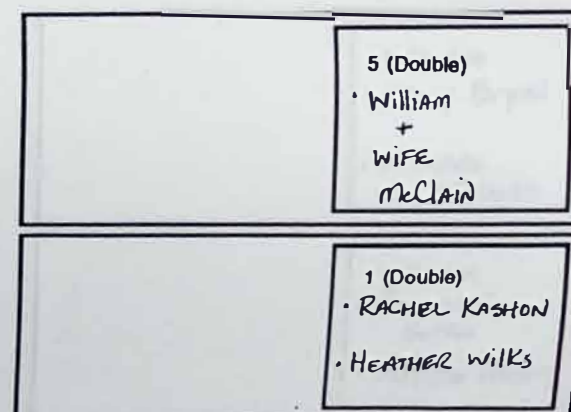 5 (Double)
· William
+
WIFE
McCLAIN
1 (Double)
· RACHEL KASHON
· HEATHER WILKS